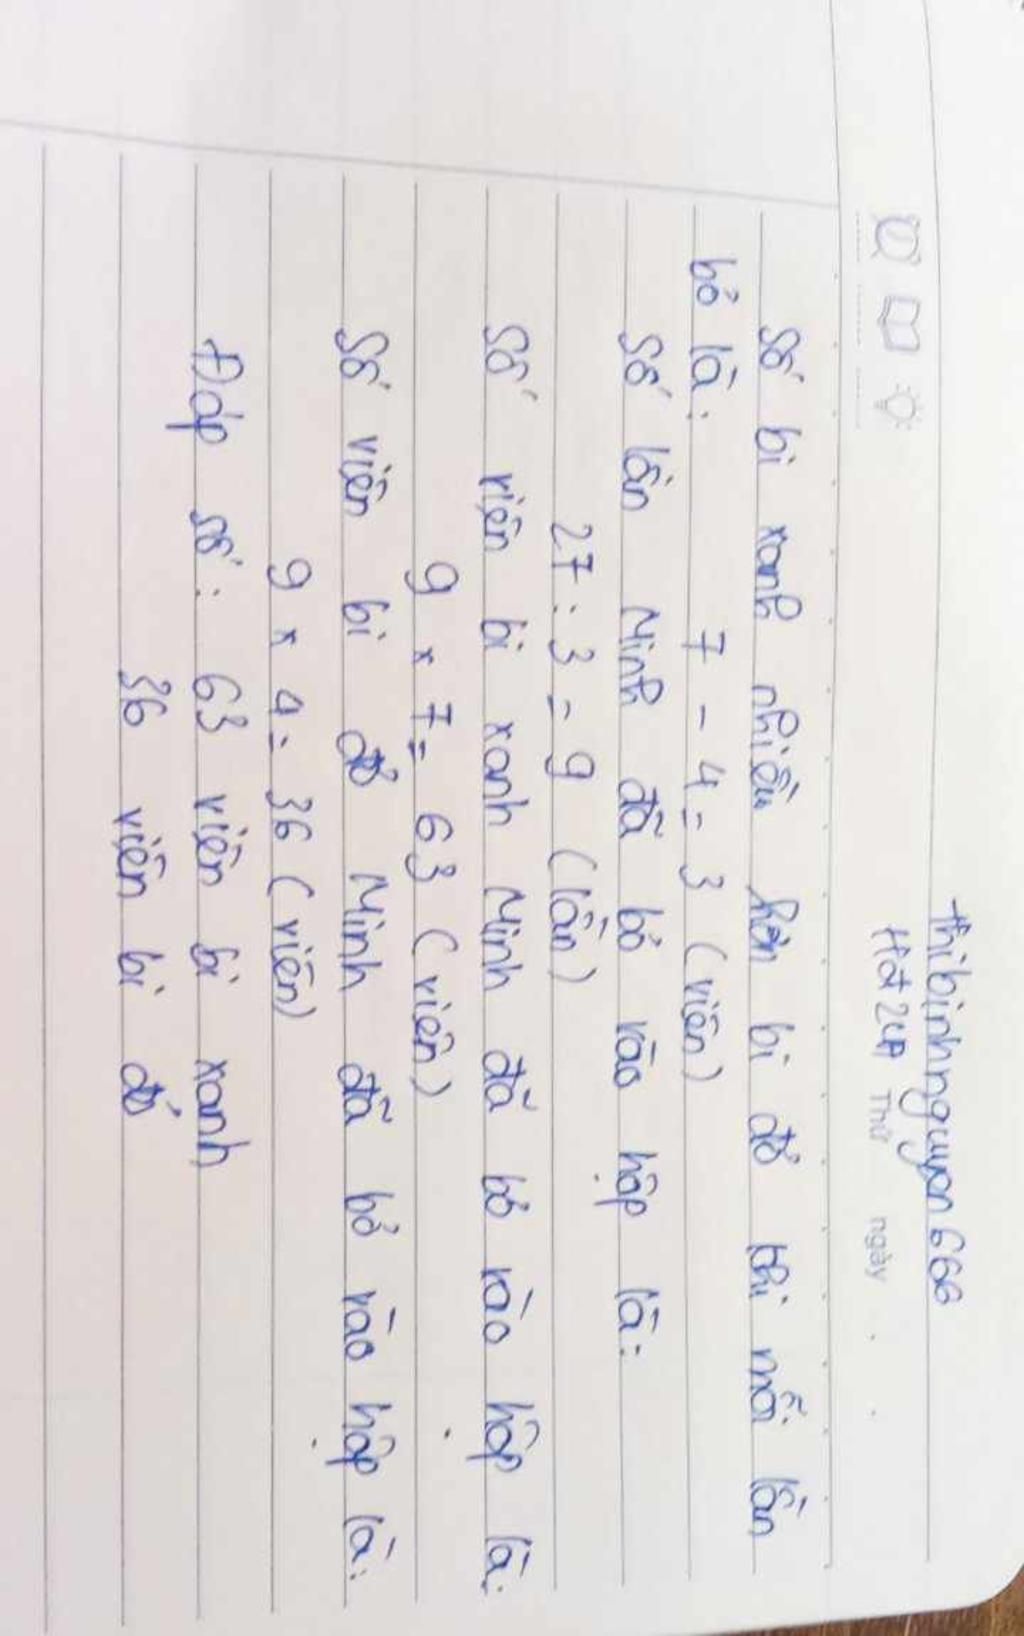 thibinhnguyen666
Hđ 24A Thứ ngày . .
Số bi xanh nhiều hơn bi đỏ khi mỗi lần
bỏ là:
7 - 4 = 3 (viên)
Số lần Minh đã bỏ vào hộp là:
27 : 3 = 9 (lần)
Số viên bi xanh Minh đã bỏ vào hộp là:
9 x 7 = 63 (viên)
Số viên bi đỏ Minh đã bỏ vào hộp là:
9 x 4 = 36 (viên)
Đáp số: 63 viên bi xanh
36 viên bi đỏ